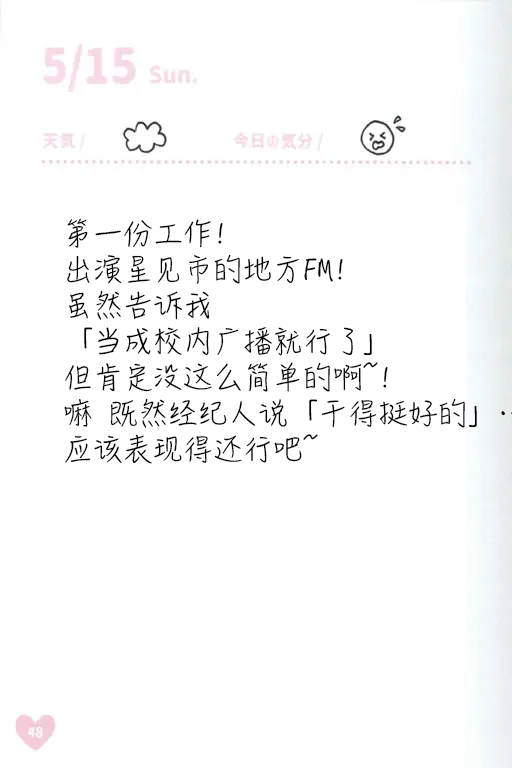 5/15 Sun.
天気/ 今日の気分/
第一份工作!
出演星见市的地方FM!
虽然告诉我
「当成校内广播就行了」
但肯定没这么简单的啊~!
嘛 既然经纪人说「干得挺好的」··
应该表现得还行吧~
48